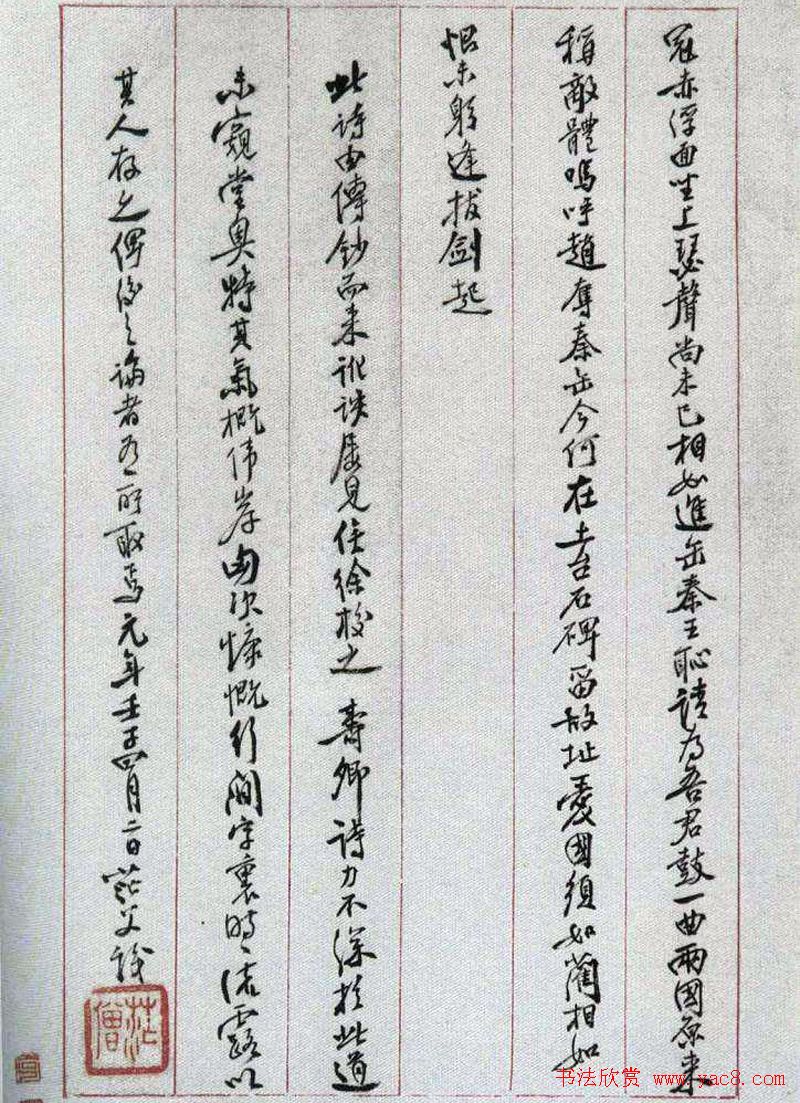 冠赤浮面坐上瑟聲尚未已相如進缶秦王恥請為吾君鼓一曲兩國原來
稱敵體嗚呼趙奪秦缶今何在土台石碑留故址憂國須如藺相如
恨未躬逢拔劍起
此詩由傳鈔而来訛誤屡見住徐校之 壽卿詩力不深於此道
未窺堂奧特其氣概伟岸困次慷慨行間字裏時々流露以
其人存之俾後之論者有所取焉元年壬子四月二日茫父識
茫僧
书法欣赏 www.yac8.com